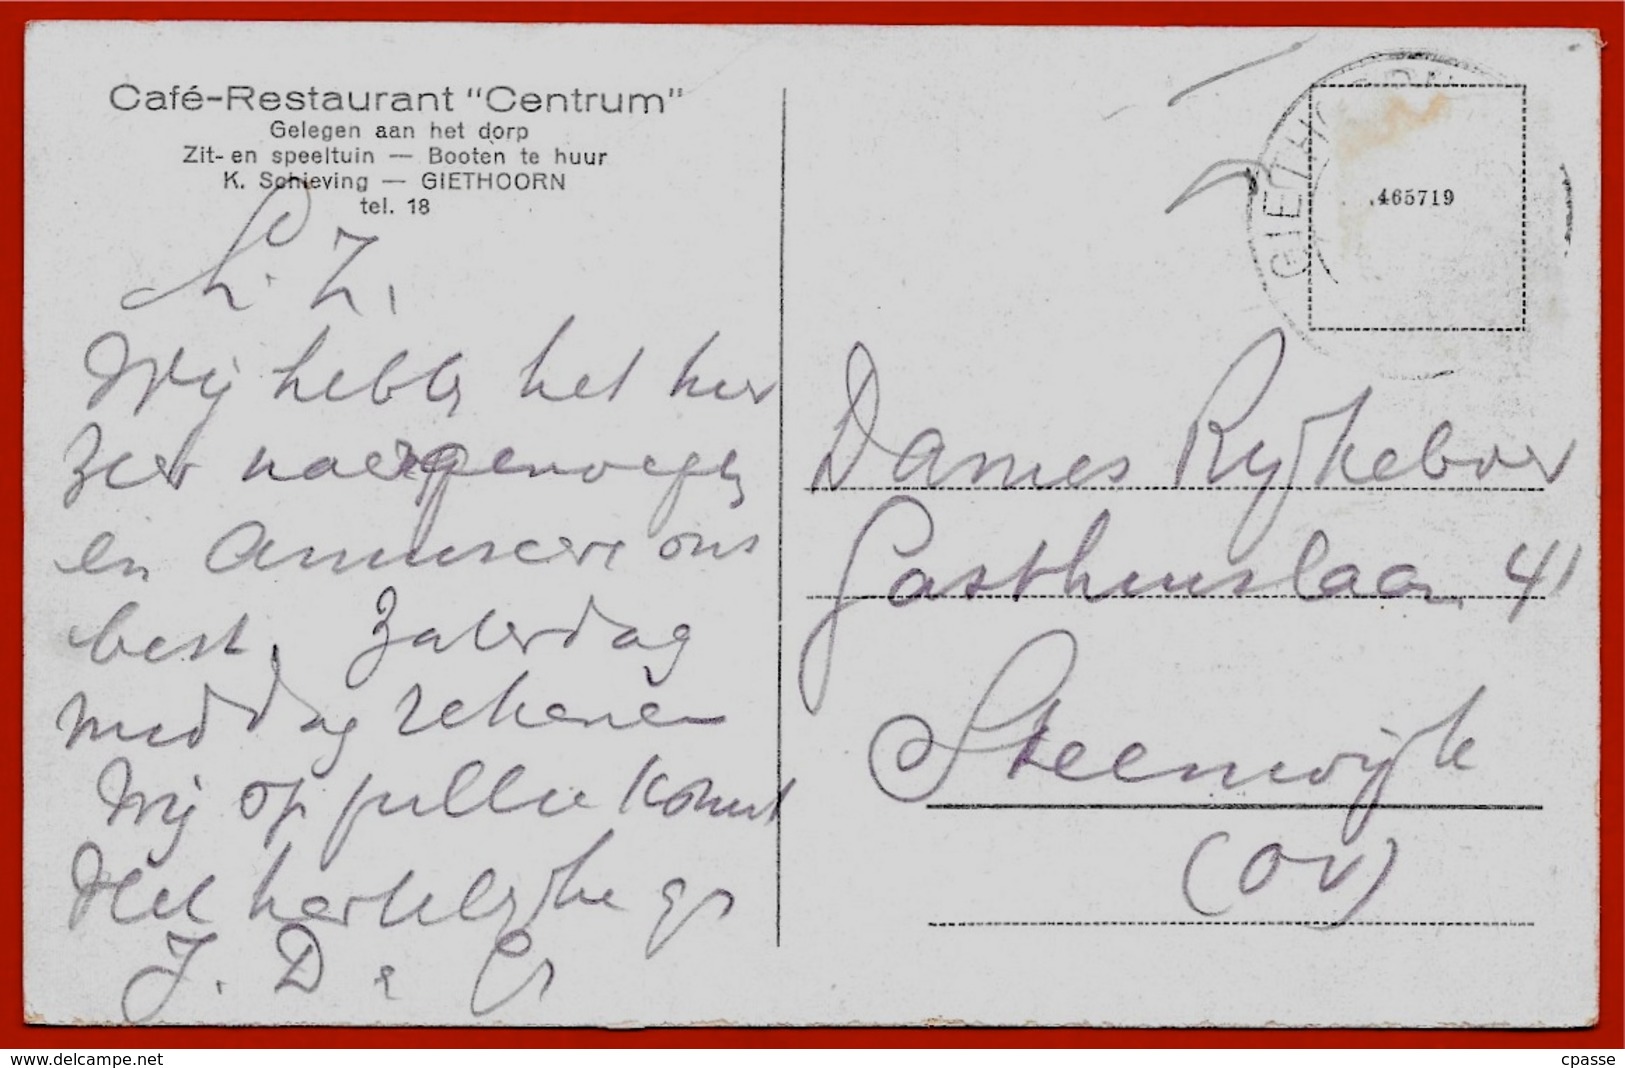 Café-Restaurant "Centrum"
Gelegen aan het dorp
Zit- en speeltuin — Booten te huur
K. Schieving — GIETHOORN
tel. 18
L. Z.
Wij hebben het hier
zeer naar genoegen
en amuseere ons
best. Zaterdag
middag rekenen
wij op jullie komst
Met hartelijke gr
J. D &
GIETHOORN
.465719
Dames Rijkeboer
Gasthuislaan 41
Steenwijk
(OV)
www.delcampe.net
cpasse